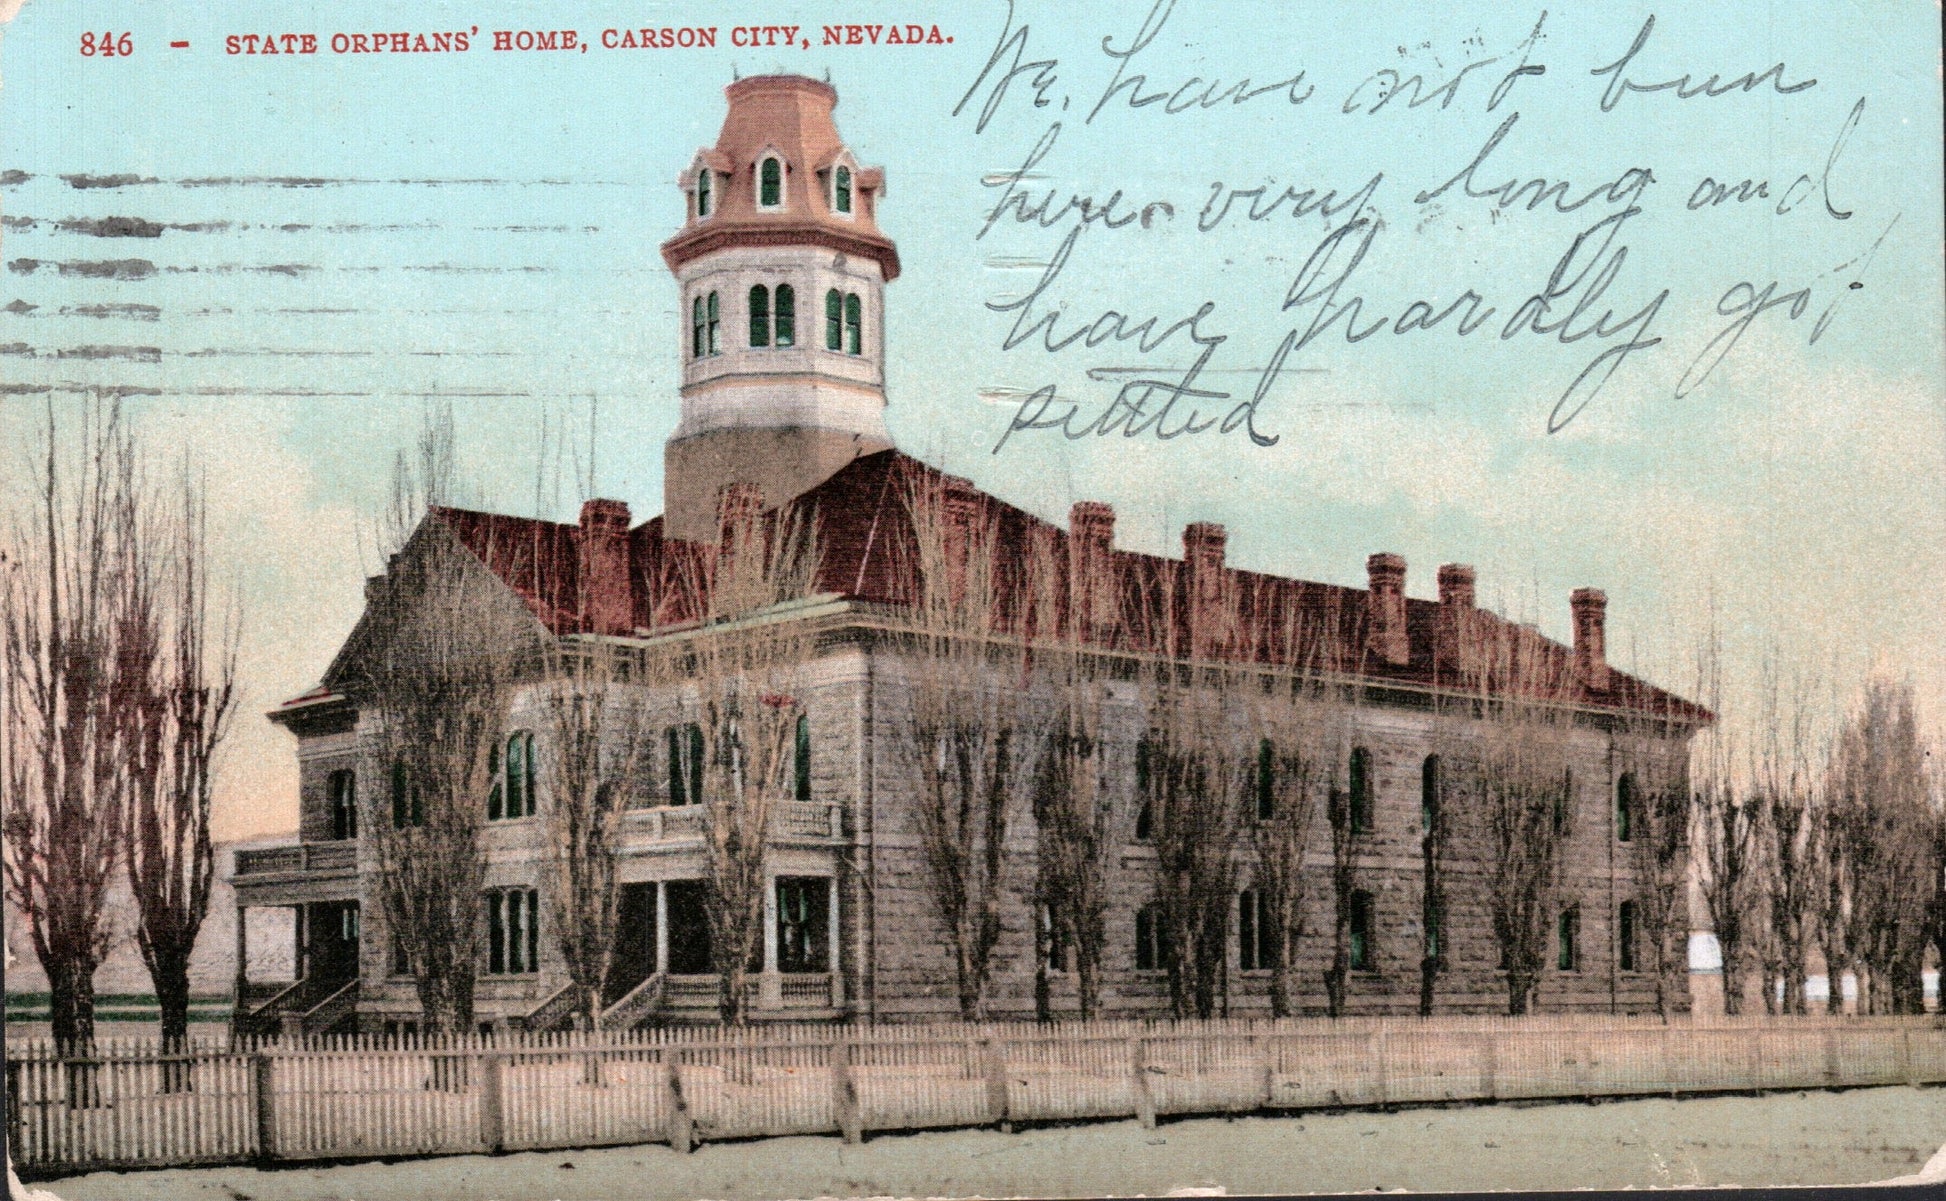 846 - STATE ORPHANS' HOME, CARSON CITY, NEVADA.
We have not been
here very long and
have hardly got
settled